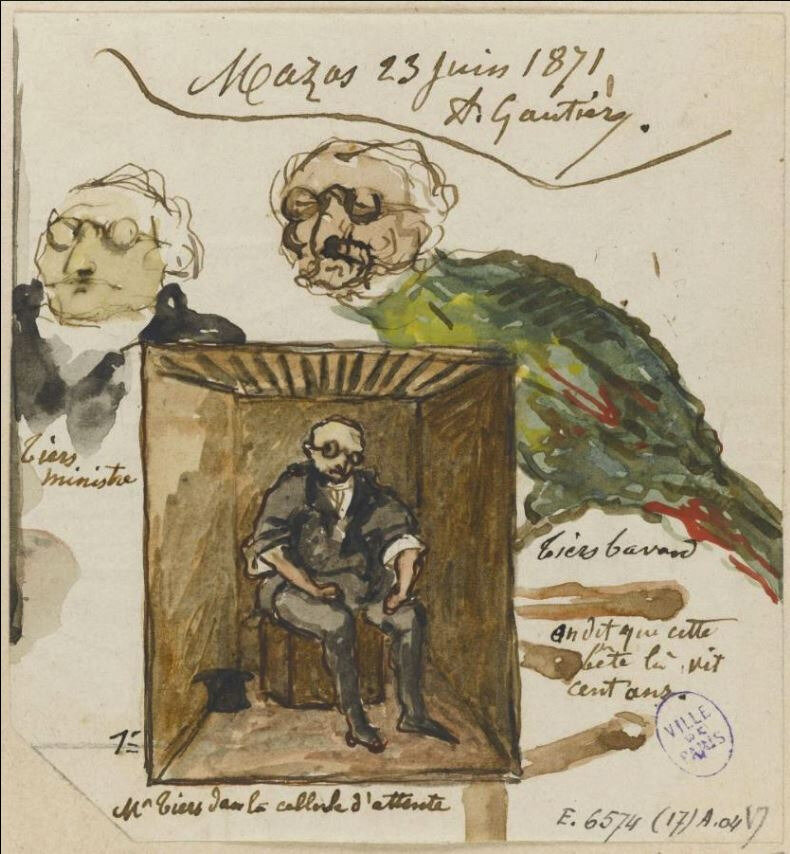 Mazas 23 juin 1871
A. Gautier.
tiers
ministre
tiers bavard
on dit que cette
bête là vit
cent ans.
VILLE
DE
PARIS
1º
Mr tiers dans la cellule d'attente
E. 6574 (17) A.04